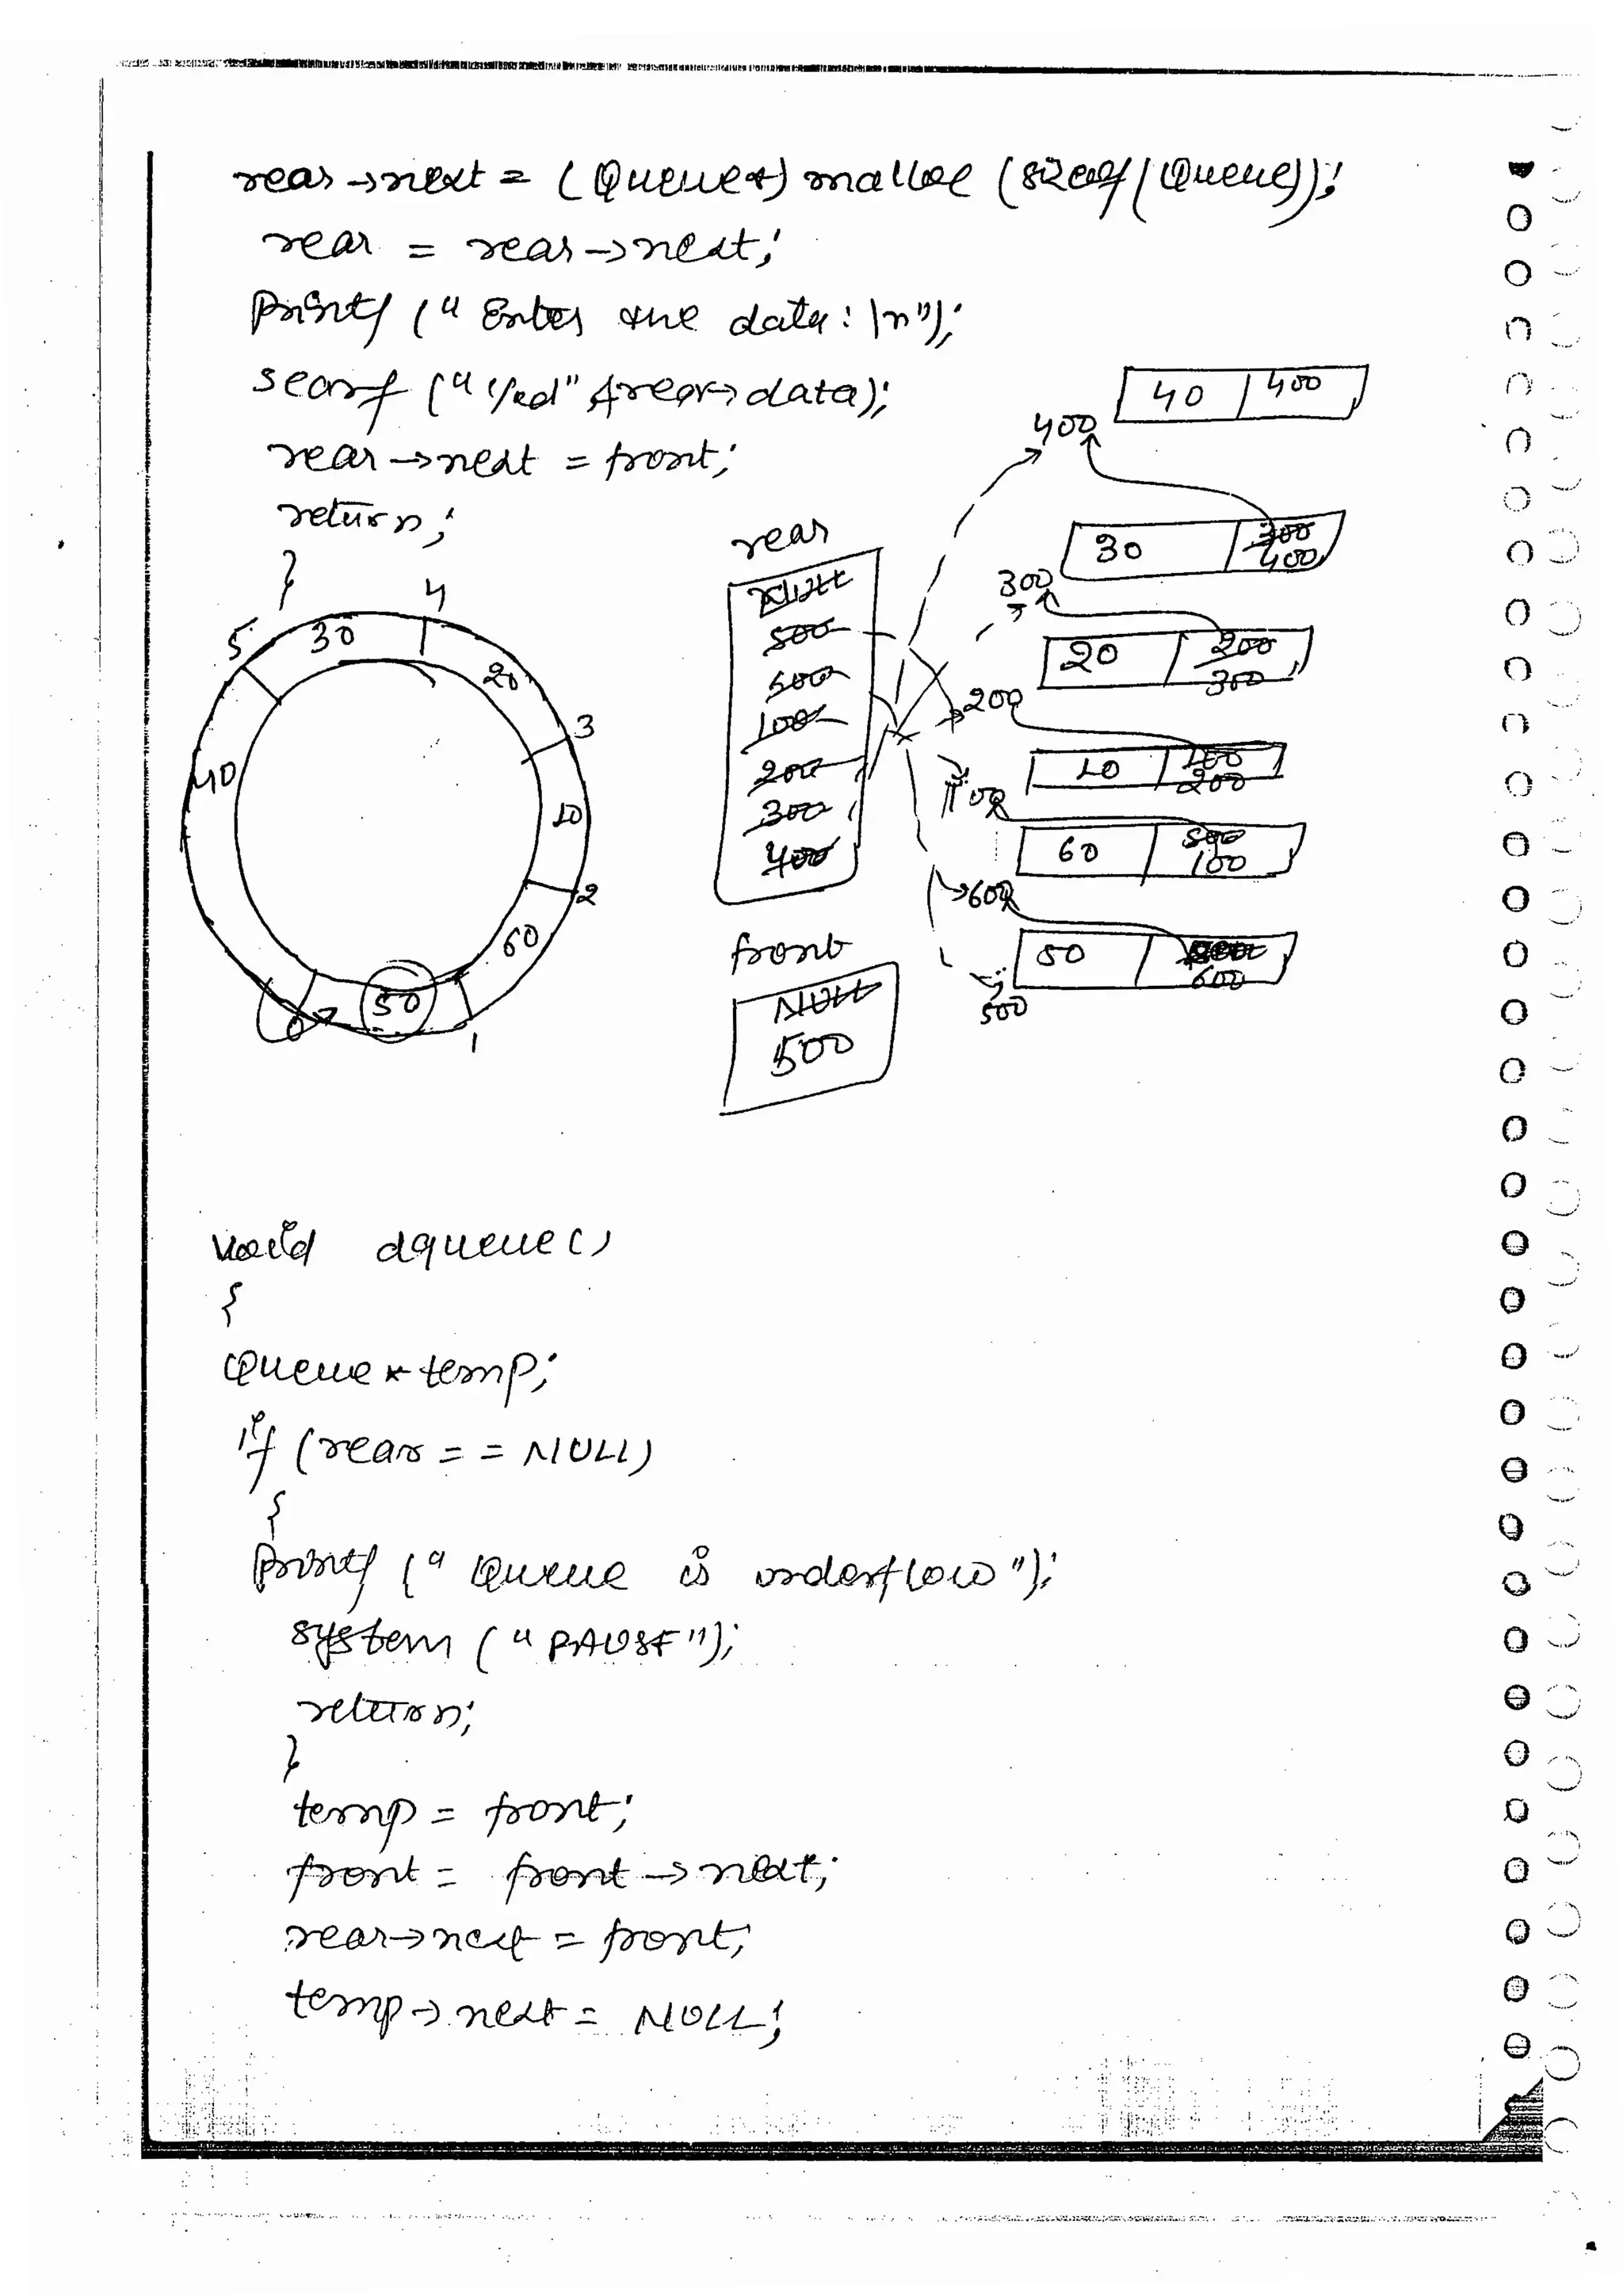 rear → next = (Queue*) malloc (sizeof(Queue));
rear = rear → next;
printf (" Enter the data : \n");
scanf ("%d" &rear→data);
rear → next = front;
return;
}
40 400
400
30 300 400
300
20 200 300
200
10 100 200
100
60 500 100
600
50 600
500
rear
NULL
500
600
100
200
300
400
front
NULL
500
5 30 4
20
3
40
10
2
60
50
1
void dqueue()
{
Queue * temp;
if (rear == NULL)
{
printf (" Queue is underflow ");
system ("PAUSE");
return;
}
temp = front;
front = front → next;
rear → next = front;
temp → next = NULL;